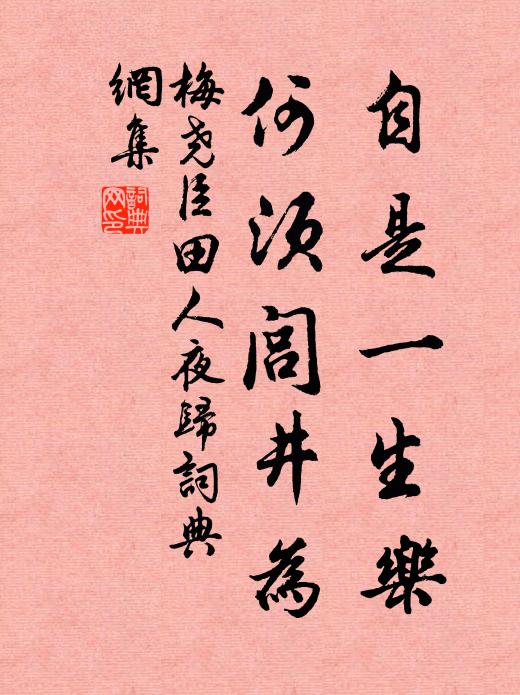 自是一生樂
何須閭井為
梅堯臣田人夜歸詞典
網集
詞典網印